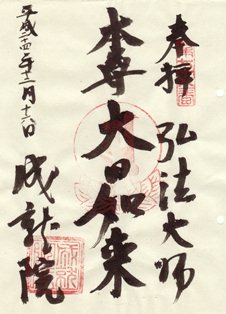 奉拝
弘法大師
本尊
大日如来
平成二十四年十二月十六日
成就院